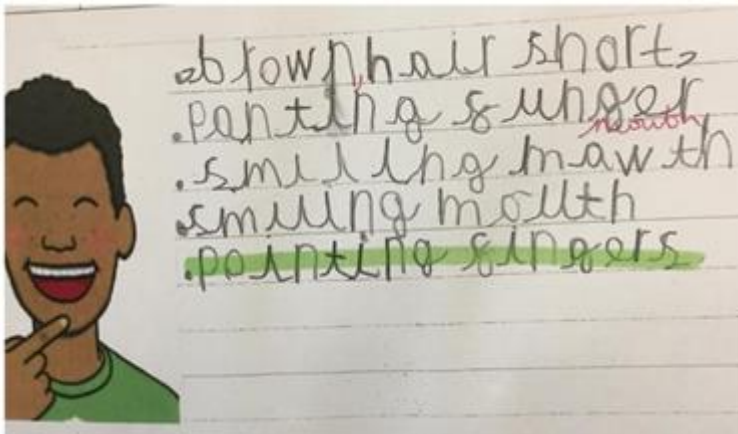 .brown, hair short,
.penting funger
mouth
.smiling mawth
smiling mouth
.pointing fingers